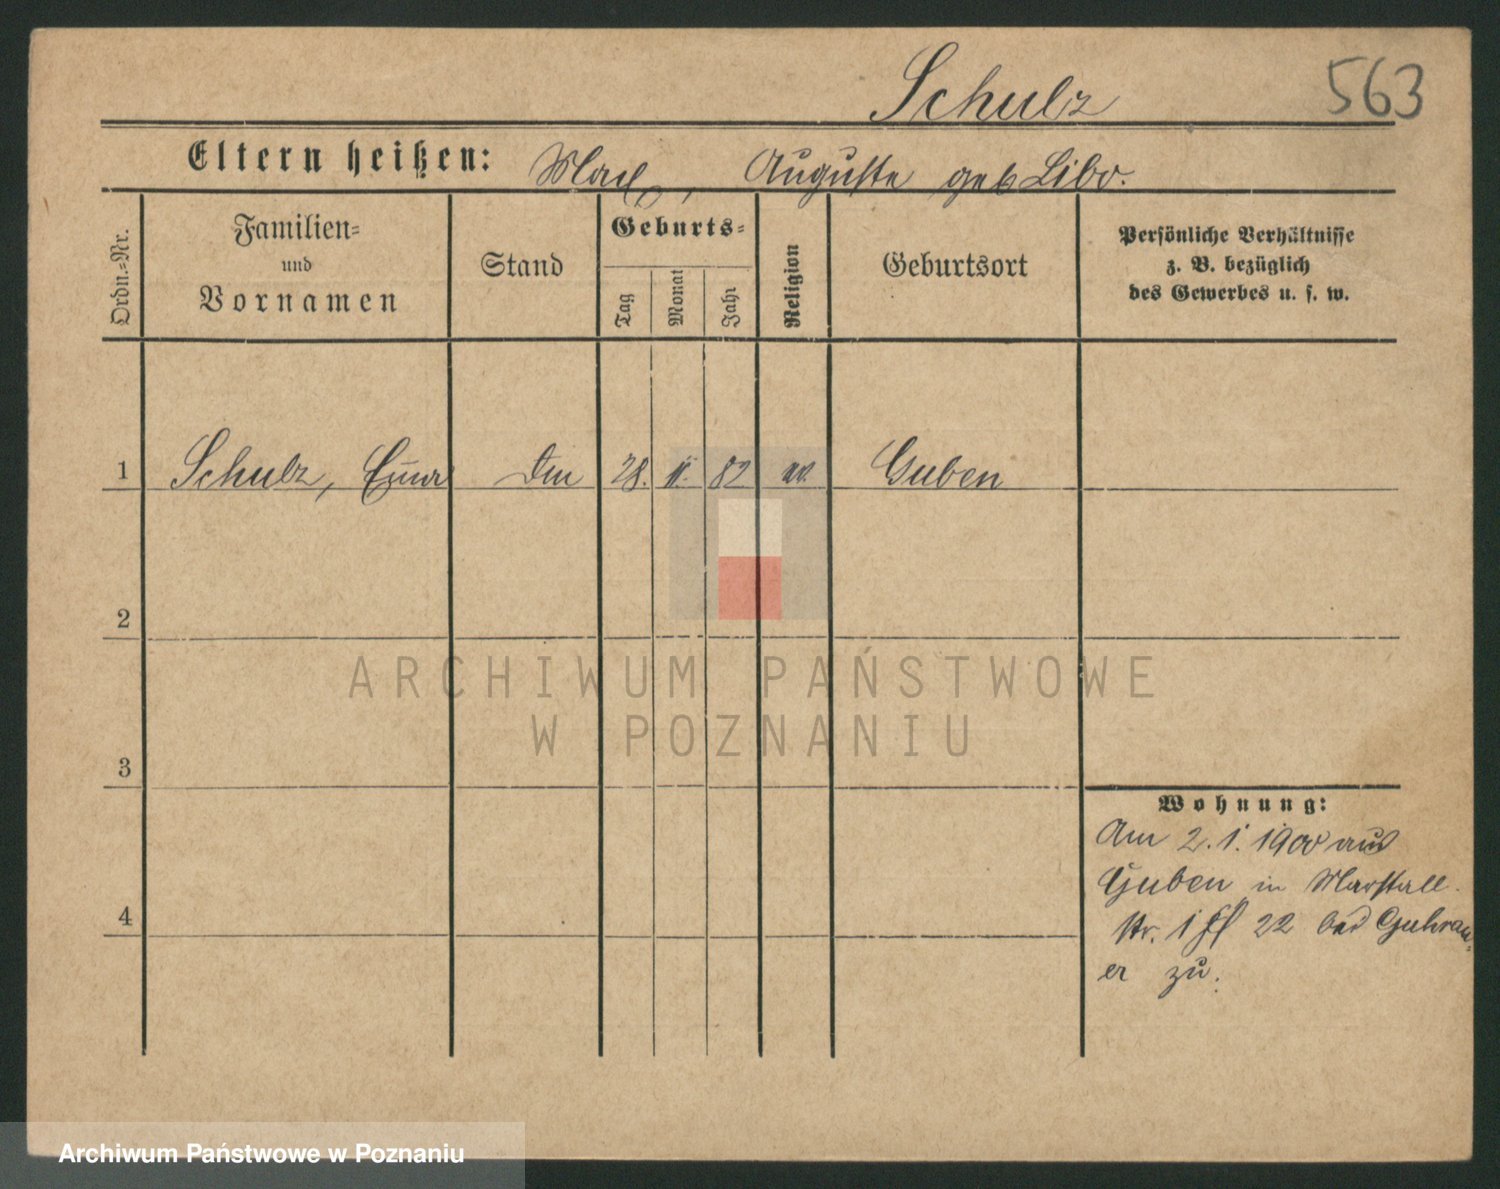 Schulz 563
Eltern heißen: Max, Auguste geb Libo.
Ordn.=Nr.
Familien=
und
Vornamen
Stand
Geburts=
Tag
Monat
Jahr
Religion
Geburtsort
Persönliche Verhältnisse
z. B. bezüglich
des Gewerbes u. s. w.
1 Schulz, 28. 82 Guben
2
3
4
Wohnung:
Am 2. 1. 1900 aus
Guben in Marstall-
str. 1 22 bei Guhrau=
er zu.
ARCHIWUM PAŃSTWOWE
W POZNANIU
Archiwum Państwowe w Poznaniu